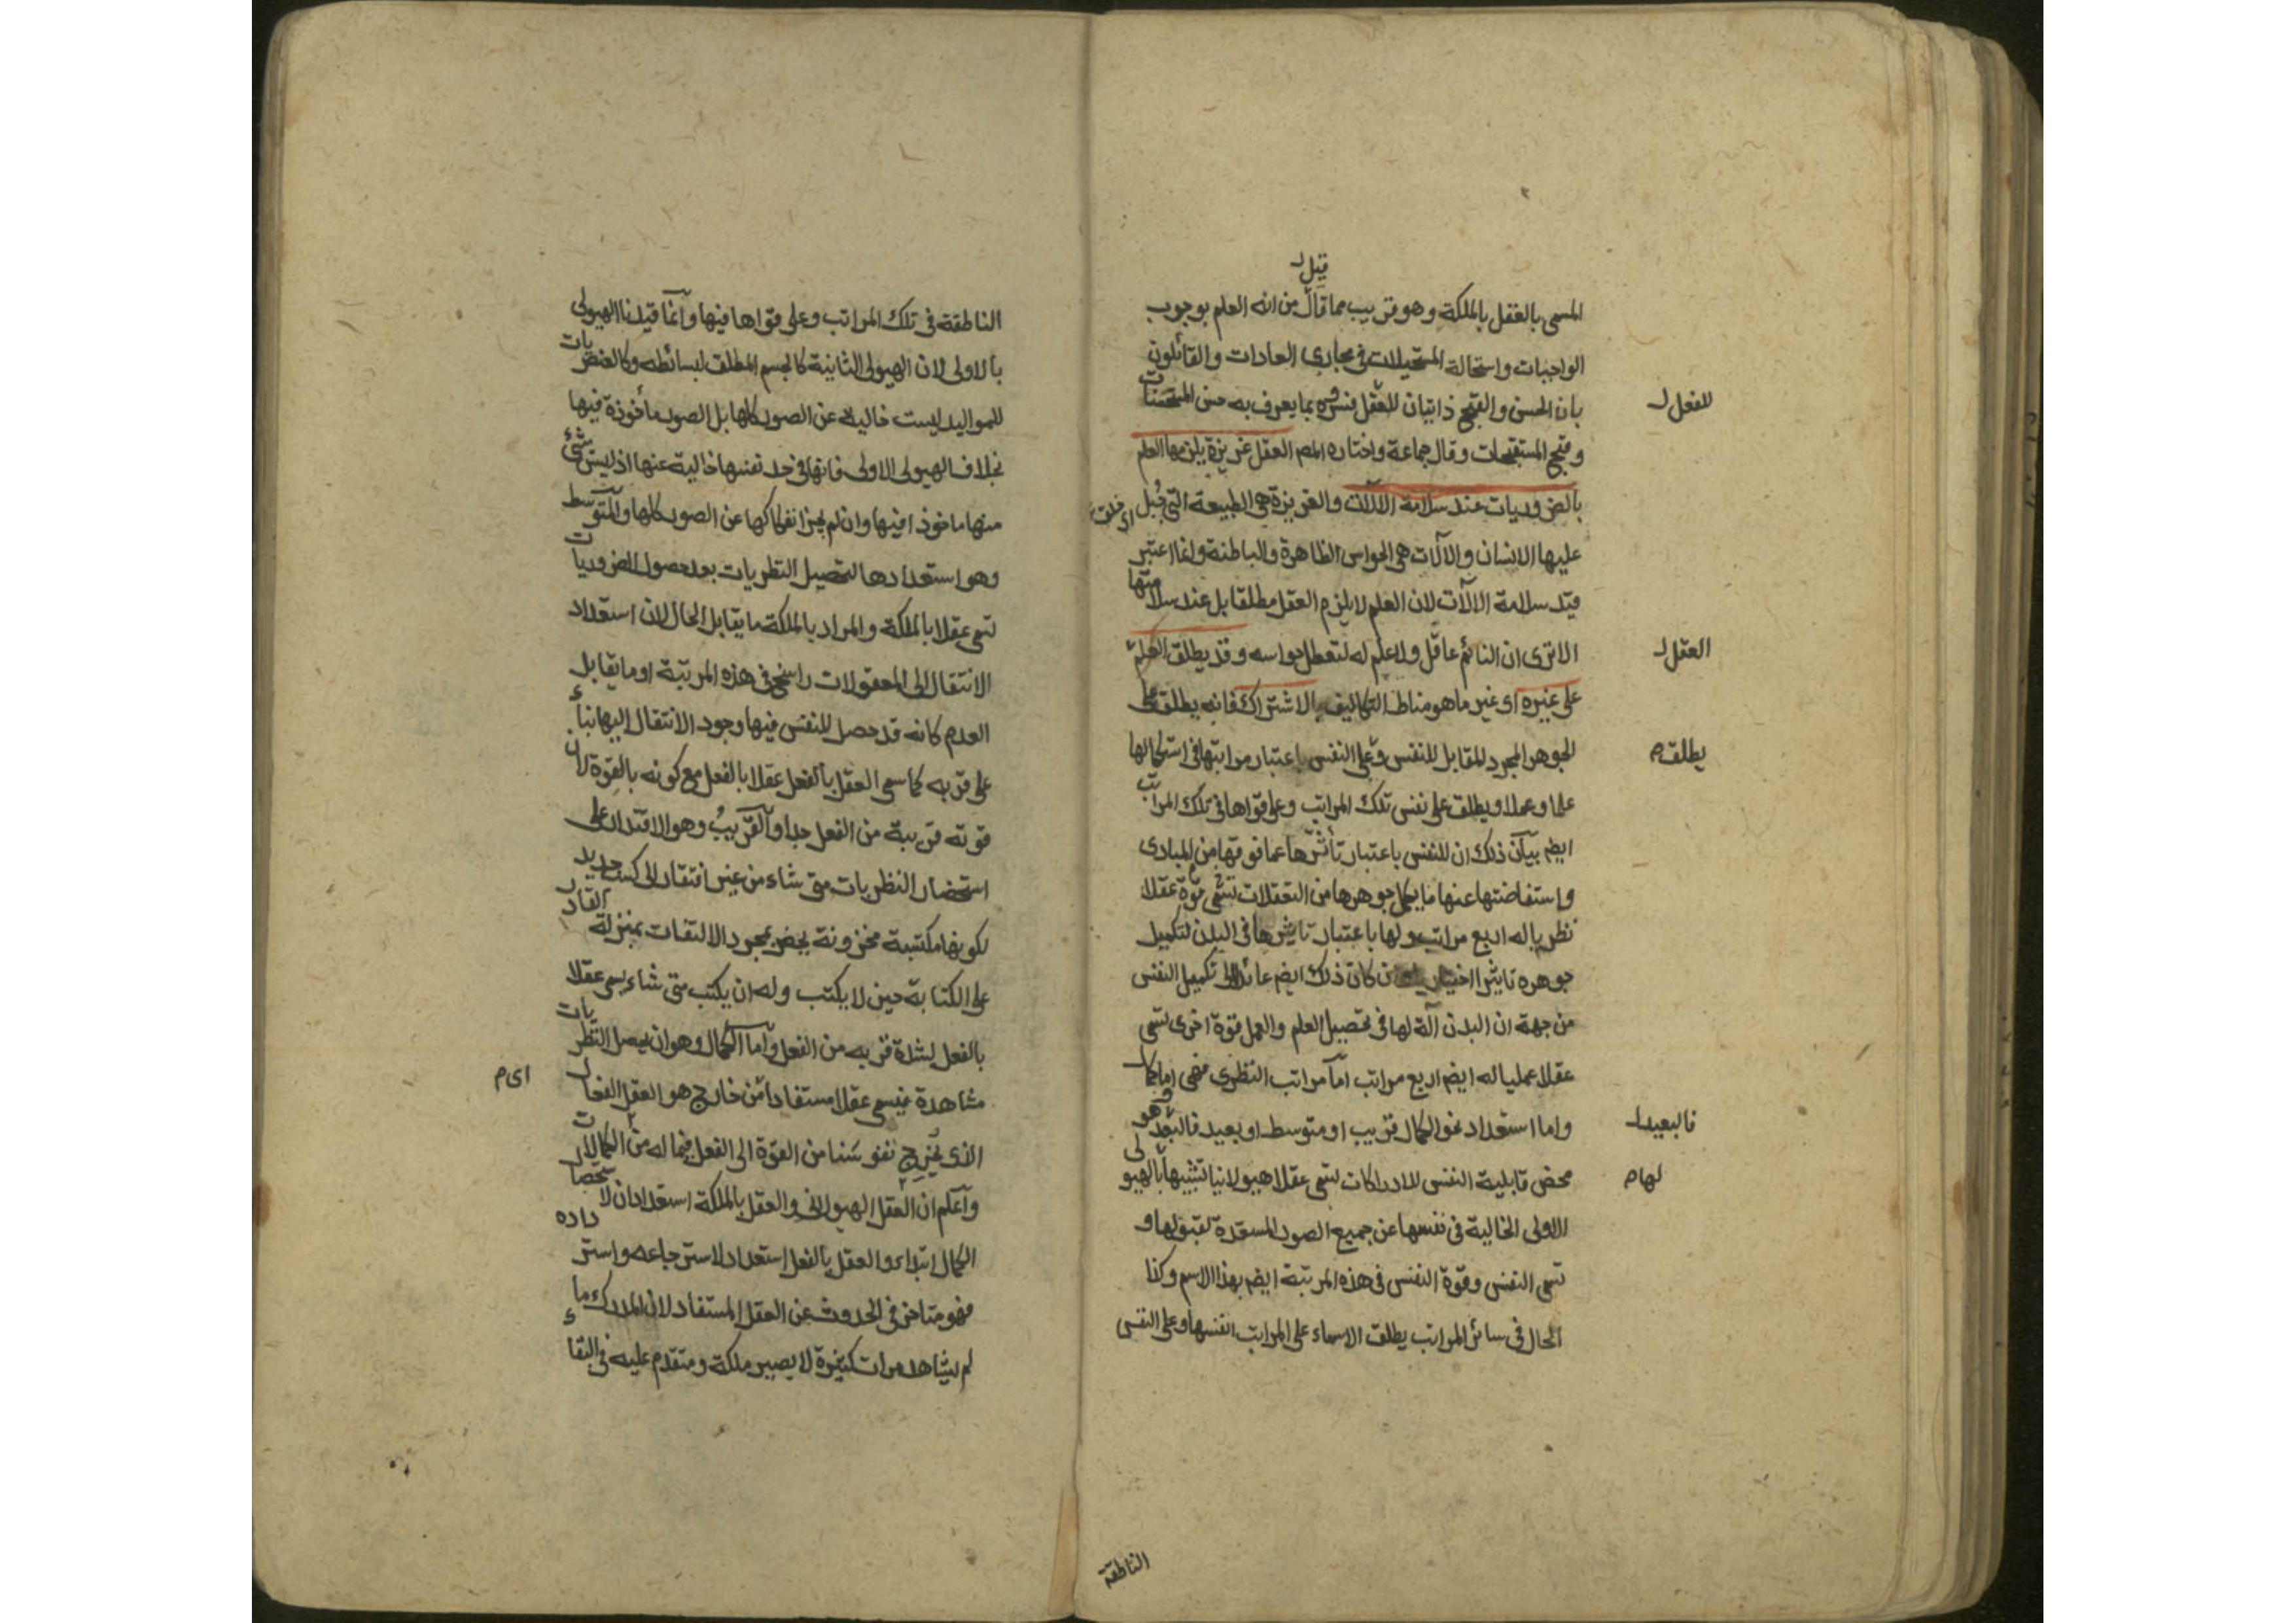 قيل
المسمى بالعقل بالملكة وهو قريب مما قال من انه العلم بوجوب
الواجبات واستحالة المستحيلات في مجاري العادات والقائلون
بان الحسن والقبح ذاتيان للعقل فسروه بما يعرف به حسن المستحسنات
للفعل
وقبح المستقبحات وقال جماعة واختاره المص العقل غريزة يلزمها العلم
بالضروريات عند سلامة الالات والغريزة هي الطبيعة التي جُبل
اى خلقت
عليها الانسان والآلات هي الحواس الظاهرة والباطنة وانما اعتبر
قيد سلامة الالآت لان العلم لا يلزم العقل مطلقا بل عند سلامتها
الا ترى ان النائم عاقل ولا علم له لتعطل حواسه وقد يطلق العلم
العقل
على غيره اى غير ما هو مناط التكاليف بالاشتراك فانه يطلق على
الجوهر المجرد المقابل للنفس وعلى النفس باعتبار مراتبها في استكمالها
يطلق م
علما وعملا ويطلق على نفس تلك المراتب وعلى قواها في تلك المراتب
ايضم بيان ذلك ان للنفس باعتبار تأثرها عما فوقها من المبادى
واستفاضتها عنها ما يكمل جوهرها من التعقلات تسمى قوة عقلا
نظريا له اربع مراتب ولها باعتبار تاثيرها في البدن لتكميل
جوهره تاثيرا اختياريا كان ذلك ايضم عائد الى تكميل النفس
من جهة ان البدن آلة لها في تحصيل العلم والعمل قوة اخرى تسمى
عقلا عمليا له ايضم اربع مراتب اما مراتب النظرى فهى اما كمال
واما استعداد نحو الكمال قريب او متوسط او بعيد فالبعد وهو
فالبعيد
محض قابلية النفس للادراكات تسمى عقلا هيولانيا تشبيها بالهيولى
لها م
الاولى الخالية في نفسها عن جميع الصور المستعدة لقبولها و
تسمى النفس وقوة النفس في هذه المرتبة ايضم بهذا الاسم وكذا
الحال في سائر المراتب يطلق الاسماء على المراتب انفسها وعلى النفس
الناطقة
الناطقة في تلك المراتب وعلى قواها فيها وانما قيدنا الهيولى
بالاولى لان الهيولى الثانية كالجسم المطلق لبسائطه وكالعنصريات
للمواليد ليست خالية عن الصور كلها بل الصور مأخوذة فيها
بخلاف الهيولى الاولى فانها في حد نفسها خالية عنها اذ ليس شئ
منها ماخوذا فيها وان لم يجز انفكاكها عن الصور كلها والمتوسط
وهو استعدادها لتحصيل النظريات بعد حصول الضروريات
تسمى عقلا بالملكة والمراد بالملكة ما يقابل الحال لان استعداد
الانتقال الى المعقولات راسخ في هذه المرتبة او ما يقابل
العدم كانه قد حصل للنفس فيها وجود الانتقال اليها بناء
على قربه كما سمى العقل بالفعل عقلا بالفعل مع كونه بالقوة لان
قوته قريبة من الفعل جدا والقريب وهو الاقتدار على
استحضار النظريات متى شاء من غير افتقار الى كسب جديد
لكونها مكتسبة مخزونة يحضر بمجرد الالتفات بمنزلة القادر
على الكتابة حين لا يكتب وله ان يكتب متى شاء يسمى عقلا
بالفعل لشدة قربه من الفعل واما الكمال وهو ان يحصل النظريات
مشاهدة فيسمى عقلا مستفادا من خارج هو العقل الفعال
اى م
الذى يُخرج نفوسنا من القوة الى الفعل فيما له من الكمالات
واعلم ان العقل الهيولانى والعقل بالملكة استعدادان لاستحصال
الكمال ابتداء والعقل بالفعل استعداد لاسترجاعه واسترداده
فهو متاخر في الحدوث عن العقل المستفاد لان المدرك ما
لم يشاهد مرات كثيرة لا يصير ملكة ومتقدم عليه في البقاء